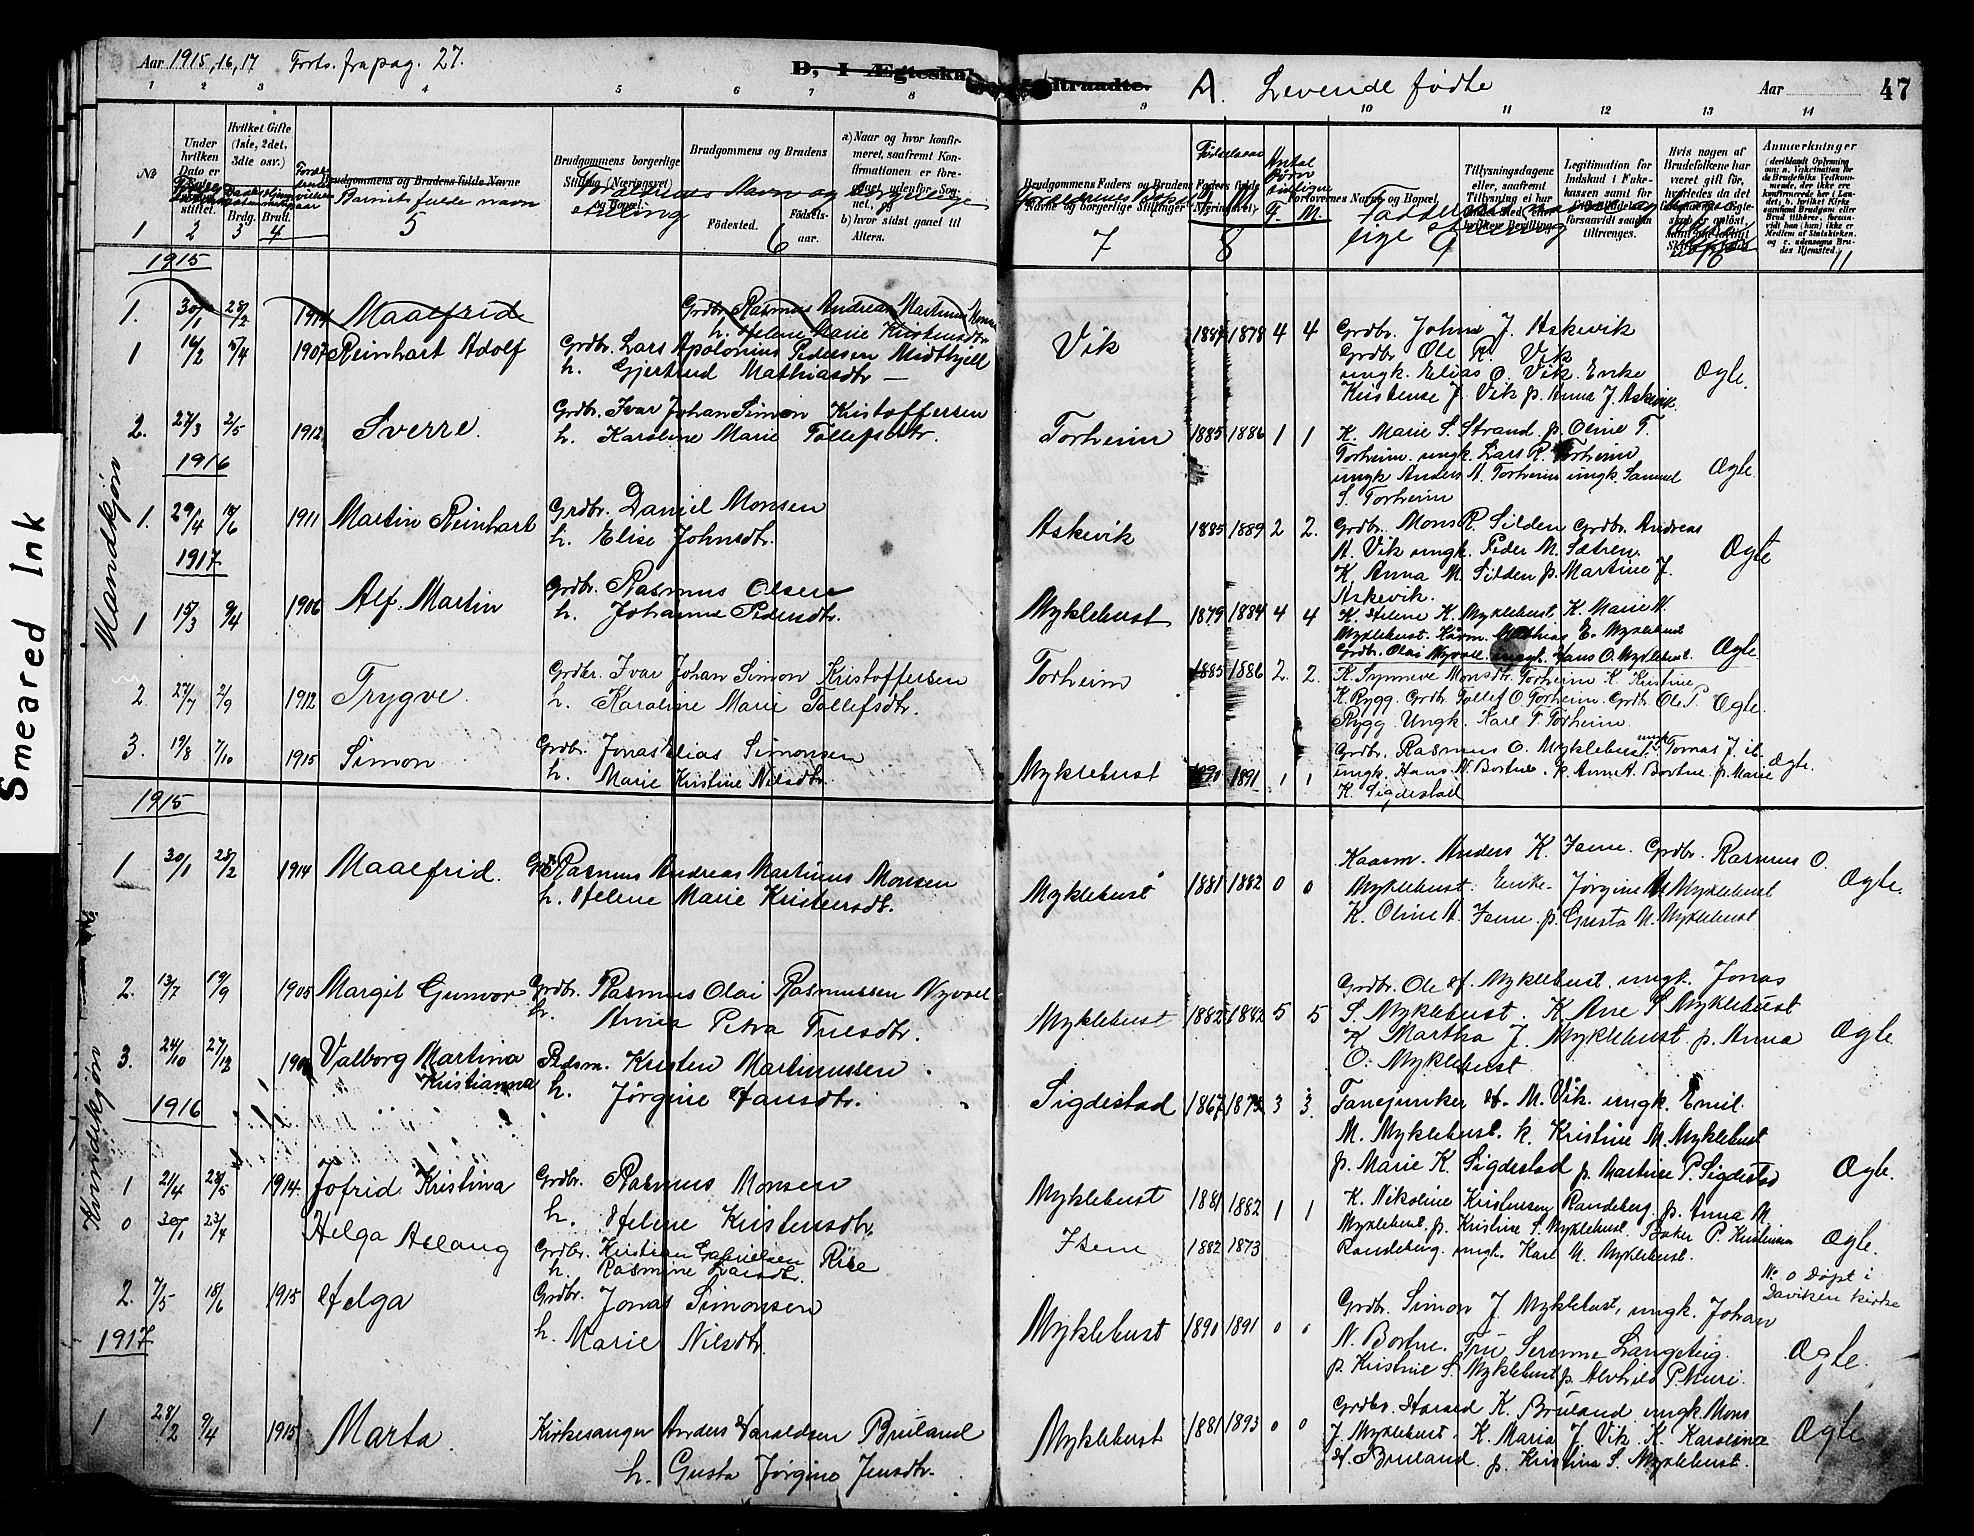 Smeared Ink
Aar 1915, 16, 17 Forts. fra pag. 27.
D, I Ægteska
ltraadte.
A. Levende fødte
Aar
47
1 2 3 4 5 6 7 8
9 10 11 12 13 14
No
Under hvilken Dato er
stiftet.
Hvilket Gifte (1ste, 2det, 3die osv.)
Brdg. Brud.
Brudgommens og Brudens fulde Navne
Barnets fulde navn
Brudgommens borgerlige Stilling (Næringsvei) og Bopæl.
Forældrenes Navn og borgerlige
stilling
Brudgommens og Brudens
Fødested. Fødselsaar.
a) Naar og hvor konfirmeret, saafremt Konfirmationen er foretaget udenfor Sognet, og
b) hvor sidst gaaet til Alters.
Brudgommens Faders og Brudens Faders fulde Navne og borgerlige Stillinger (Næringsvei).
Forældrenes Bopæl
Fødselsaar
F. M.
Antal Børn
F. M.
Forlovernes Navne og Bopæl.
Faddernes navne og
lige stilling
Tillysningsdagene eller, saafremt Tillysning ei har
Legitimation for Indskud i Fukekassen samt for
forsaavidt saadan tiltrænges.
Hvis nogen af Brudefolkene har været gift før, hvorledes da det
Anmærkninger
1 2 3 4 5 6
7 8 9 10 11
1915
1. 30/1 28/2 1914 Maalfrid Grdbr. Rasmus Andreas Martinus Monsen
h. Helene Marie Kristensdtr.
Mandkjøn
1 14/2 5/4 1907 Reinhart Adolf Grdbr. Lars Apolonius Pedersen Midthjell
h. Gjertrud Mathiasdtr. —
Vik 1884 1878 4 4 Grdbr. Johan J. Askevik
Grdbr. Ole R. Vik
ungk. Elias O. Vik. Enke
Kristense J. Vik p. Anna J. Askevik. Ægte.
2. 27/3 2/5 1912 Sverre. Grdbr. Ivar Johan Simon Kristoffersen
h. Karoline Marie Tollefsdtr.
Torheim 1885 1886 1 1 K. Marie S. Strand p. Oline T.
Torheim. ungk. Lars R. Torheim
ungk Anders A. Torheim ungk. Samuel
S. Torheim Ægte.
1916
1. 29/4 12/6 1911 Martin Reinhart Grdbr. Daniel Monsen
h. Elise Johnsdtr.
Askevik 1885 1889 2 2. Grdbr. Mons R. Silden Grdbr. Andreas
A. Vik ungk. Peder M. Sætren.
K. Anna M. Silden p. Martine J.
Askevik. Ægte
1917
1 15/3 9/4 1906 Alf Martin Grdbr. Rasmus Olsen
h. Johanne Pedersdtr.
Myklebust 1879 1884 4 4 K. Helene K. Myklebust, K. Marie N.
Myklebust. Kårm. Mathias E. Myklebust
Grdbr. Olai Nyvoll. ungk. Hans O. Myklebust. Ægte
2 27/7 2/9 1912 Trygve. Grdbr. Ivar Johan Simon Kristoffersen
h. Karoline Marie Tollefsdtr.
Torheim 1885 1886 2. 2. K. Synneve Monsdtr. Torheim K. Kristine
K. Rygg. Grdbr Tollef O. Torheim. Grdbr. Ole P.
Rygg. Ungk. Karl T. Torheim. Ægte.
3. 19/8 7/10 1915 Simon Grdbr. Jonas Elias Simonsen
h. Marie Kristine Nilsdtr.
Myklebust 1890 1891 1 1 Grdbr. Rasmus O. Myklebust. ungk. Tomas J. ib.
ungk. Hans N. Bortne. p. Anne A. Bortne. p. Marie
K. Sigdestad Ægte.
Kvindekjøn
1915
1 30/1 28/2 1914 Maalfrid. Grdbr. Rasmus Andreas Martinus Monsen
h. Helene Marie Kristensdt.
Myklebust 1881 1882 0 0 Kaarm. Anders K. Isene. Grdbr. Rasmus O.
Myklebust. Enke. Jørgine M. Myklebust
K. Oline A. Isene. p. Gusta M. Myklebust Ægte.
2. 13/7 19/9 1905 Margit Gunvor Grdbr. Rasmus Olai Rasmussen Nyvoll
h. Anna Petra Tuesdtr.
Myklebust 1882 1882 5 5 Grdbr. Ole H. Myklebust, ungk. Jonas
S. Myklebust. K. Ane S. Myklebust
K. Martha J. Myklebust p. Anna
O. Myklebust Ægte
3. 24/10 27/12 Valborg Martina
Kristianna Pldsm. Kristen Martinussen
h. Jørgine Hansdtr.
Sigdestad 1867 3 3. Fanejunker H. M. Vik. ungk. Emil.
M. Myklebust. k. Kristine M. Myklebust
p. Marie K. Sigdestad p. Martine P. Sigdestad Ægte.
1916
1 21/4 28/5 1914 Jofrid Kristina Grdbr. Rasmus Monsen
h. Helene Kristensdtr.
Myklebust 1881 1882 1 1 K. Nikoline Kristensen Randeberg. p. Anna M
Myklebust. p. Kristine S. Myklebust. Baker P. Kristensen
Randeberg. ungk. Karl M. Myklebust. Ægte.
0 30/1 23/4 Helga Aslaug Grdbr. Kristian Gabrielsen Rise
h. Rasmine Larsdtr.
Isene 1882 1873
No 0 Døpt i
Daviken kirke
2. 7/5 18/6 1915 Helga Grdbr. Jonas Simonsen
h. Marie Nilsdtr.
Myklebust 1890 1891 0 0 Grdbr. Simon J. Myklebust, ungk. Johan
N. Bortne. Fru Serenne Langeteig.
p. Kristine S. Myklebust p. Alvhild P. Muri. Ægte.
1917
1 28/2 9/4 1915 Marta. Kirkesanger Anders Haraldsen Bruland
h. Gusta Jørgine Jensdtr.
Myklebust 1881 1893 0 0 Grdbr. Harald K. Bruland ungk. Mons
J. Myklebust. K. Maria J. Vik K. Karolina
H. Bruland. p. Kristina S. Myklebust. Ægte